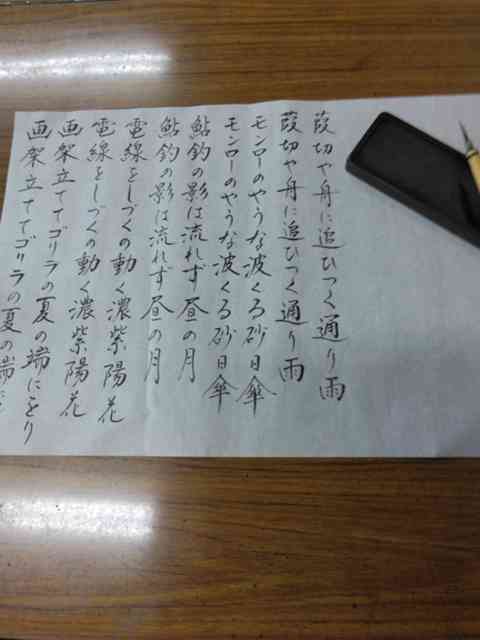 葭切や舟に追ひつく通り雨
葭切や舟に追ひつく通り雨
モンローのやうな波くる砂日傘
モンローのやうな波くる砂日傘
鮎釣の影は流れず昼の月
鮎釣の影は流れず昼の月
電線をしづくの動く濃紫陽花
電線をしづくの動く濃紫陽花
画架立ててゴリラの夏の端にをり
画架立ててゴリラの夏の端